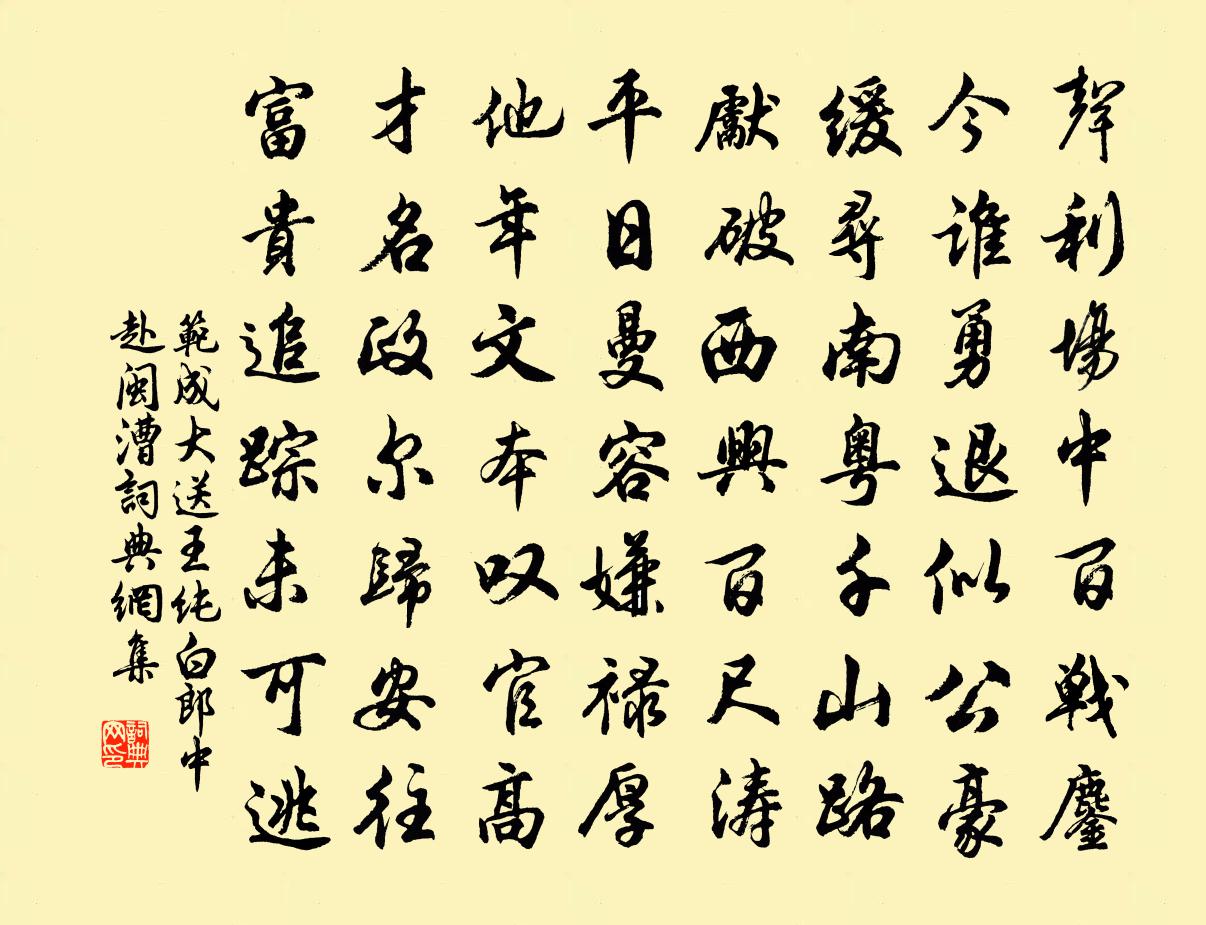 聲利場中百戰鏖
今谁勇退似公豪
缓尋南粤千山路
獻破西興百尺涛
平日曼容嫌禄厚
他年文本叹官高
才名政尔歸安往
富貴追踪未可逃
範成大送王純白郎中
赴閩漕詞典網集
詞典网印